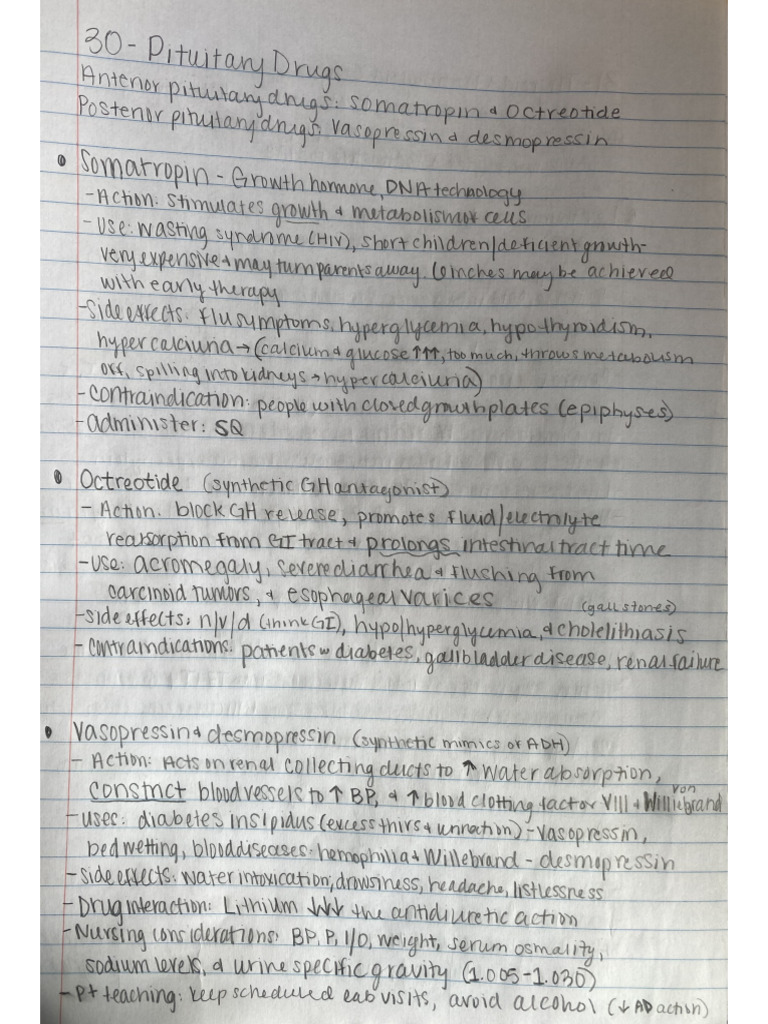 30 - Pituitary Drugs
Anterior pituitary drugs: somatropin & Octreotide
Posterior pituitary drugs: Vasopressin & desmopressin
• Somatropin - Growth hormone, DNA technology
- Action: stimulates growth & metabolism of cells
- Use: wasting syndrome (HIV), short children/deficient growth-
very expensive & may turn parents away. 6 inches may be achieved
with early therapy
- Side effects: flu symptoms, hyperglycemia, hypothyroidism,
hypercalciuria → (calcium & glucose ↑↑↑, too much, throws metabolism
off, spilling into kidneys → hypercalciuria)
- Contraindication: people with closed growth plates (epiphyses)
- administer: SQ
• Octreotide (synthetic GH antagonist)
- Action: block GH release, promotes fluid/electrolyte
reabsorption from GI tract & prolongs intestinal tract time
- Use: acromegaly, severe diarrhea & flushing from
carcinoid tumors, & esophageal varices
(gall stones)
- Side effects: n/v/d (think GI), hypo/hyperglycemia, & cholelithiasis
- Contraindications: patients w diabetes, gallbladder disease, renal failure
• Vasopressin & desmopressin (synthetic mimics of ADH)
- Action: Acts on renal collecting ducts to ↑ water absorption,
constrict blood vessels to ↑ BP, & ↑ blood clotting factor VIII & von Willebrand
- Uses: diabetes insipidus (excess thirst & urination) - vasopressin,
bed wetting, blood diseases: hemophilia & Willebrand - desmopressin
- Side effects: water intoxication; drowsiness, headache, listlessness
- Drug interaction: Lithium ↓↓↓ the antidiuretic action
- Nursing considerations: BP, P, I/O, weight, serum osmality,
sodium levels, & urine specific gravity (1.005-1.030)
- Pt teaching: keep scheduled lab visits, avoid alcohol (↓ AD action)